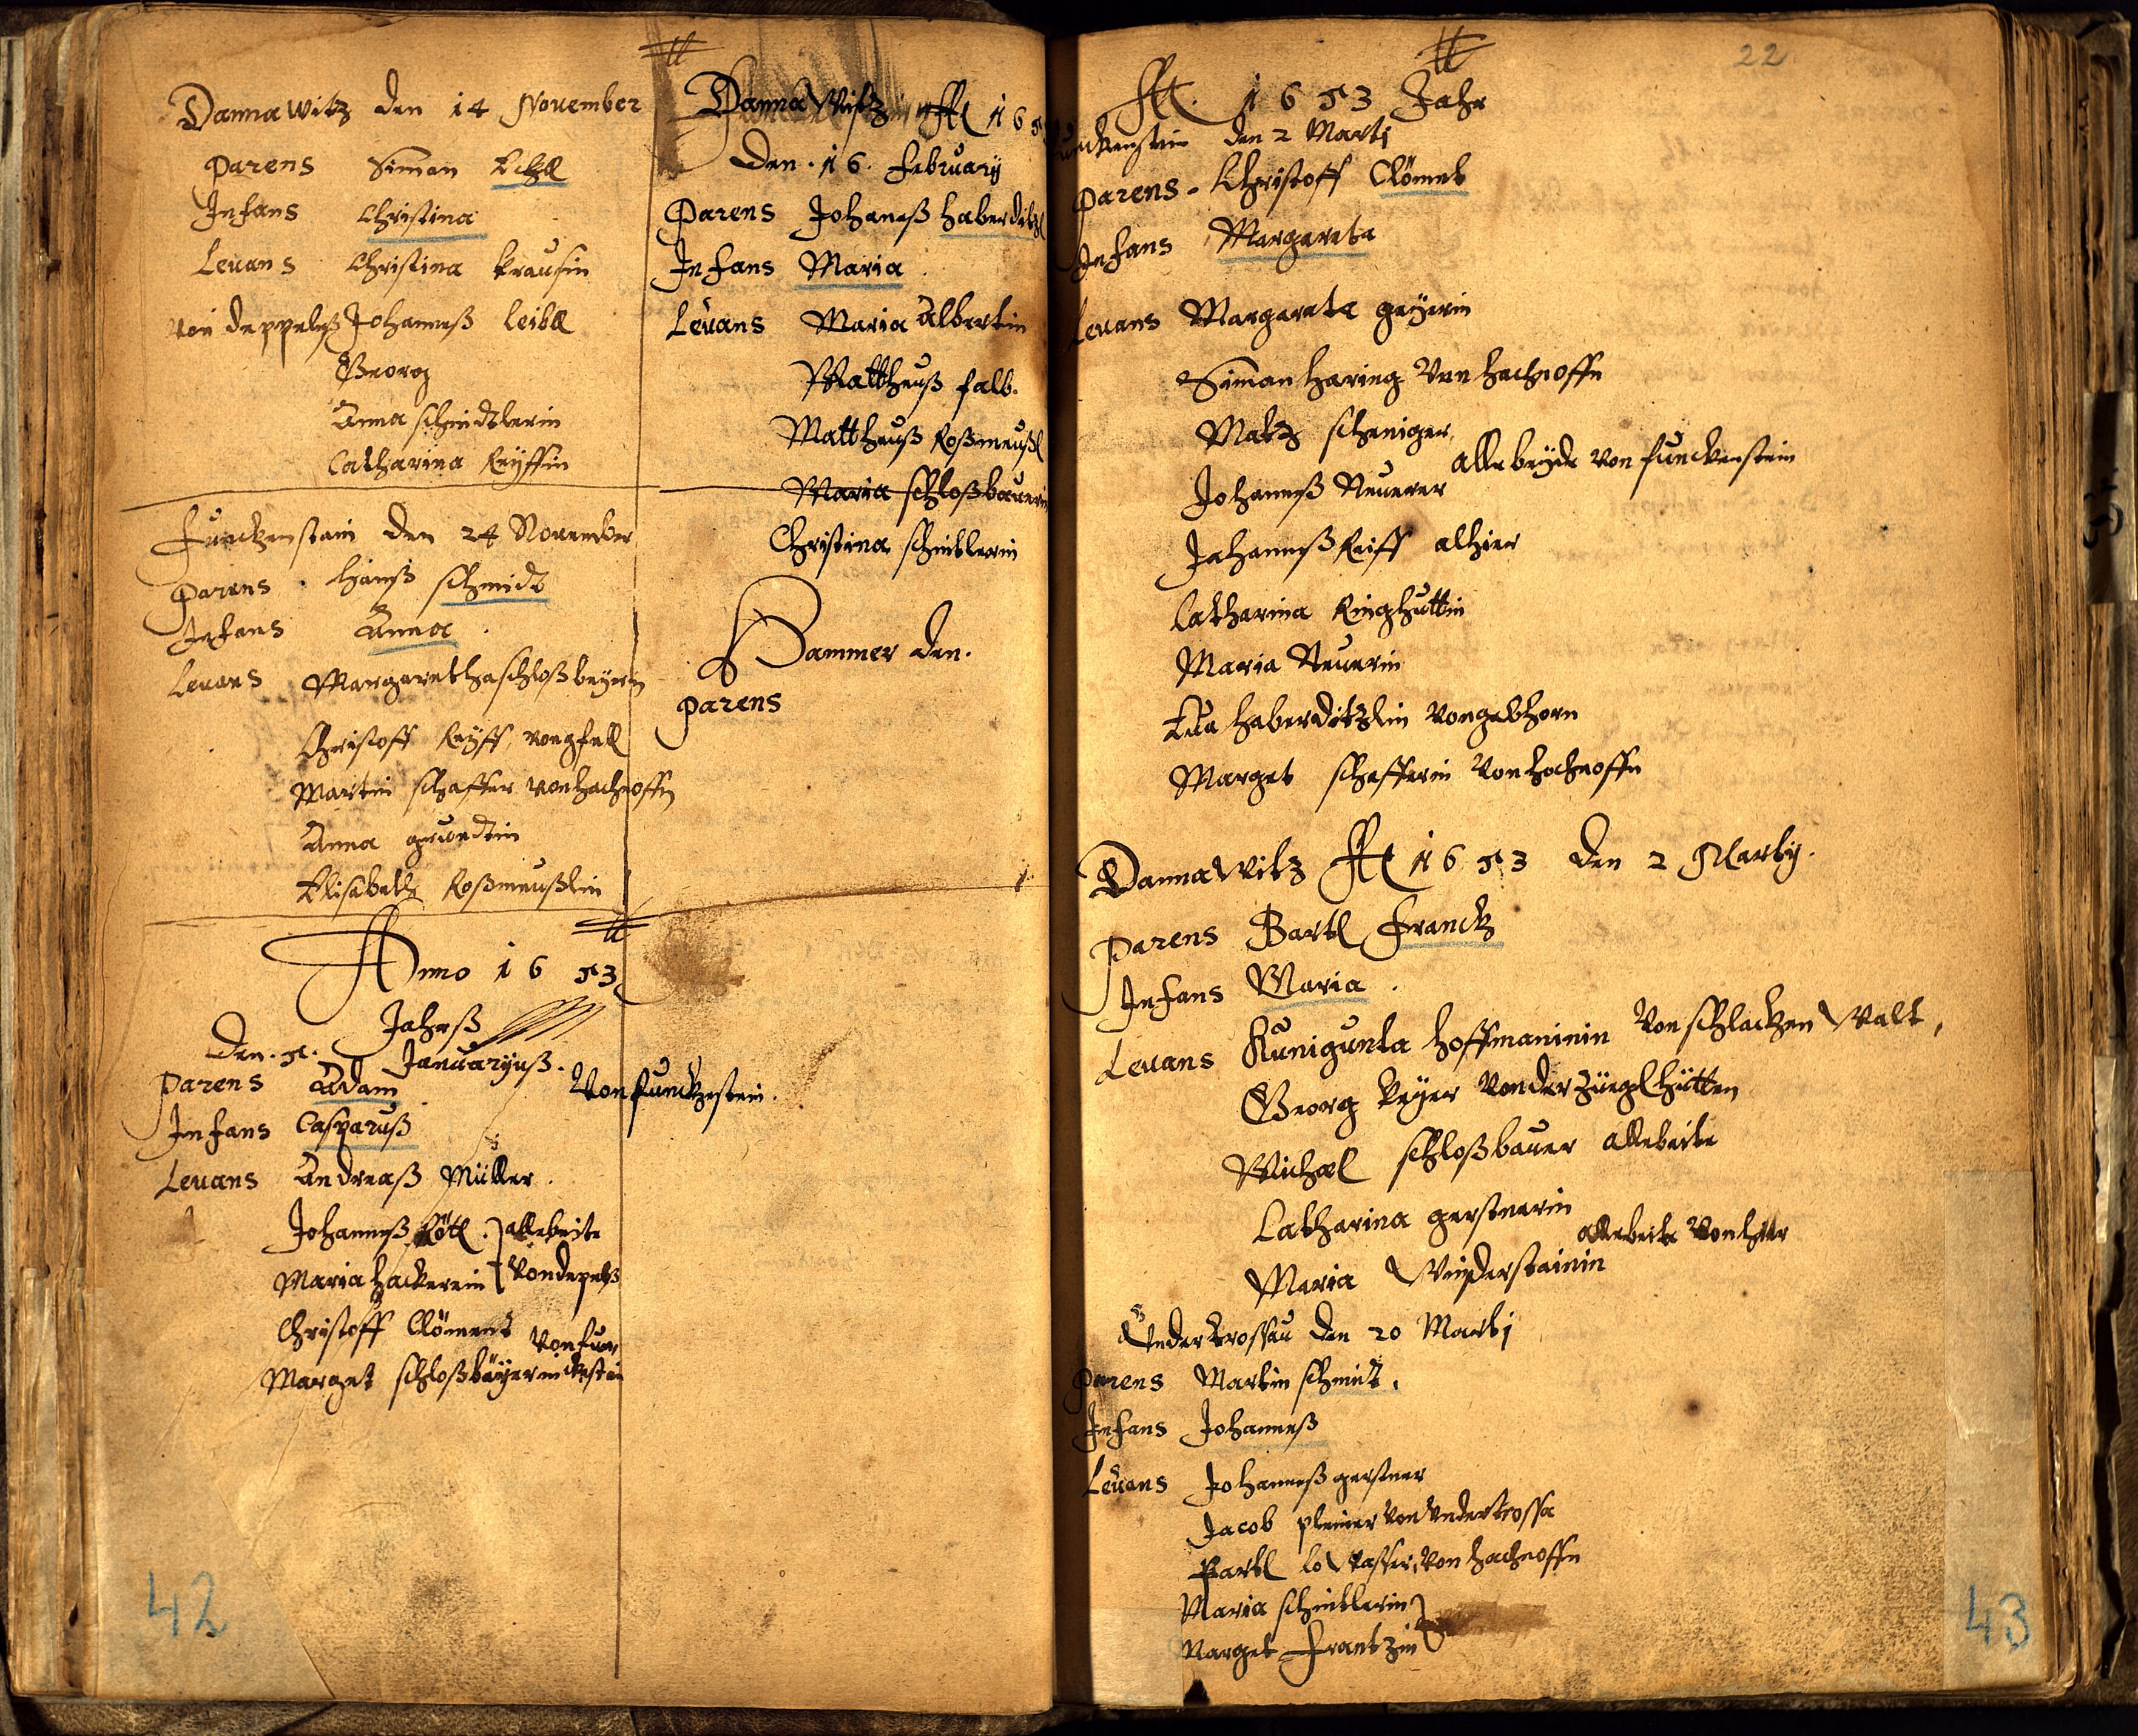 DannaWitz den 14 November
Parens Simon Eckl
Infans Christina
Leuans Christina Krausin
von deppeles Johanneß Leibl
Georg
Anna schmidtlerin
Catharina Reyffin
Funckenstain den 24 November
Parens Hanß schmidt
Infans Anna
Leuans Margaretha schloßbeyerin
Christoff Reyff, von gfell
Martin schaffer von hachnoffn
Anna grundtin
Elisabeth Roßmeußlin
Anno 1653
Jahrß
Den. 5. Januaryuß.
Parens Adam Von funckhestein.
Infans Casparuß
Leuans Andreaß Müller.
Johanneß Rötl. allebeite
Maria hackerein Von depelß
Christoff Clöment Von fun
Marget schloßbäyerin ckestein
DannaWitz A 165
Den. 16. February
Parens Johaneß haberditzl
Infans Maria
Leuans Maria Albertin
Mattheuß falb.
Mattheuß Roßmeußl
Maria schloßbauerin
Christina schmitlerin
Hammer den.
Parens
22
A. 1653 Jahr
funckenstein den 2 Marti
Parens Christoff Clöment
Infans Margareta
Leuans Margareta geyerin
Simon Haring Von hachnoffn
Matz scheniger
Johanneß Neuerer alle beyde von funckenstein
Johanneß Reiff alhier
Catharina Ringhuttin
Maria Neuerin
Eua haberditzlin von gabhorn
Marget schefferin Von hochnoffn
DannaWitz A 1653 den 2 Marty.
Parens Bartl Franckh
Infans Maria.
Leuans Kunigunta hoffmaninin Von schlacken Walt,
Georg beyer Von der Ziegl hütten
Michæl schloßbauer allebeite
Catharina gerstnerin
Maria Winderstainin allebeite Von hier
Under trossau den 20 Marti
Parens Martin schmitt.
Infans Johanneß
Leuans Johanneß gerstner
Jacob pleier von Undertrossa
Partl Von hachnoffn
Maria schmitlerin
Marget Frantzin
42
43